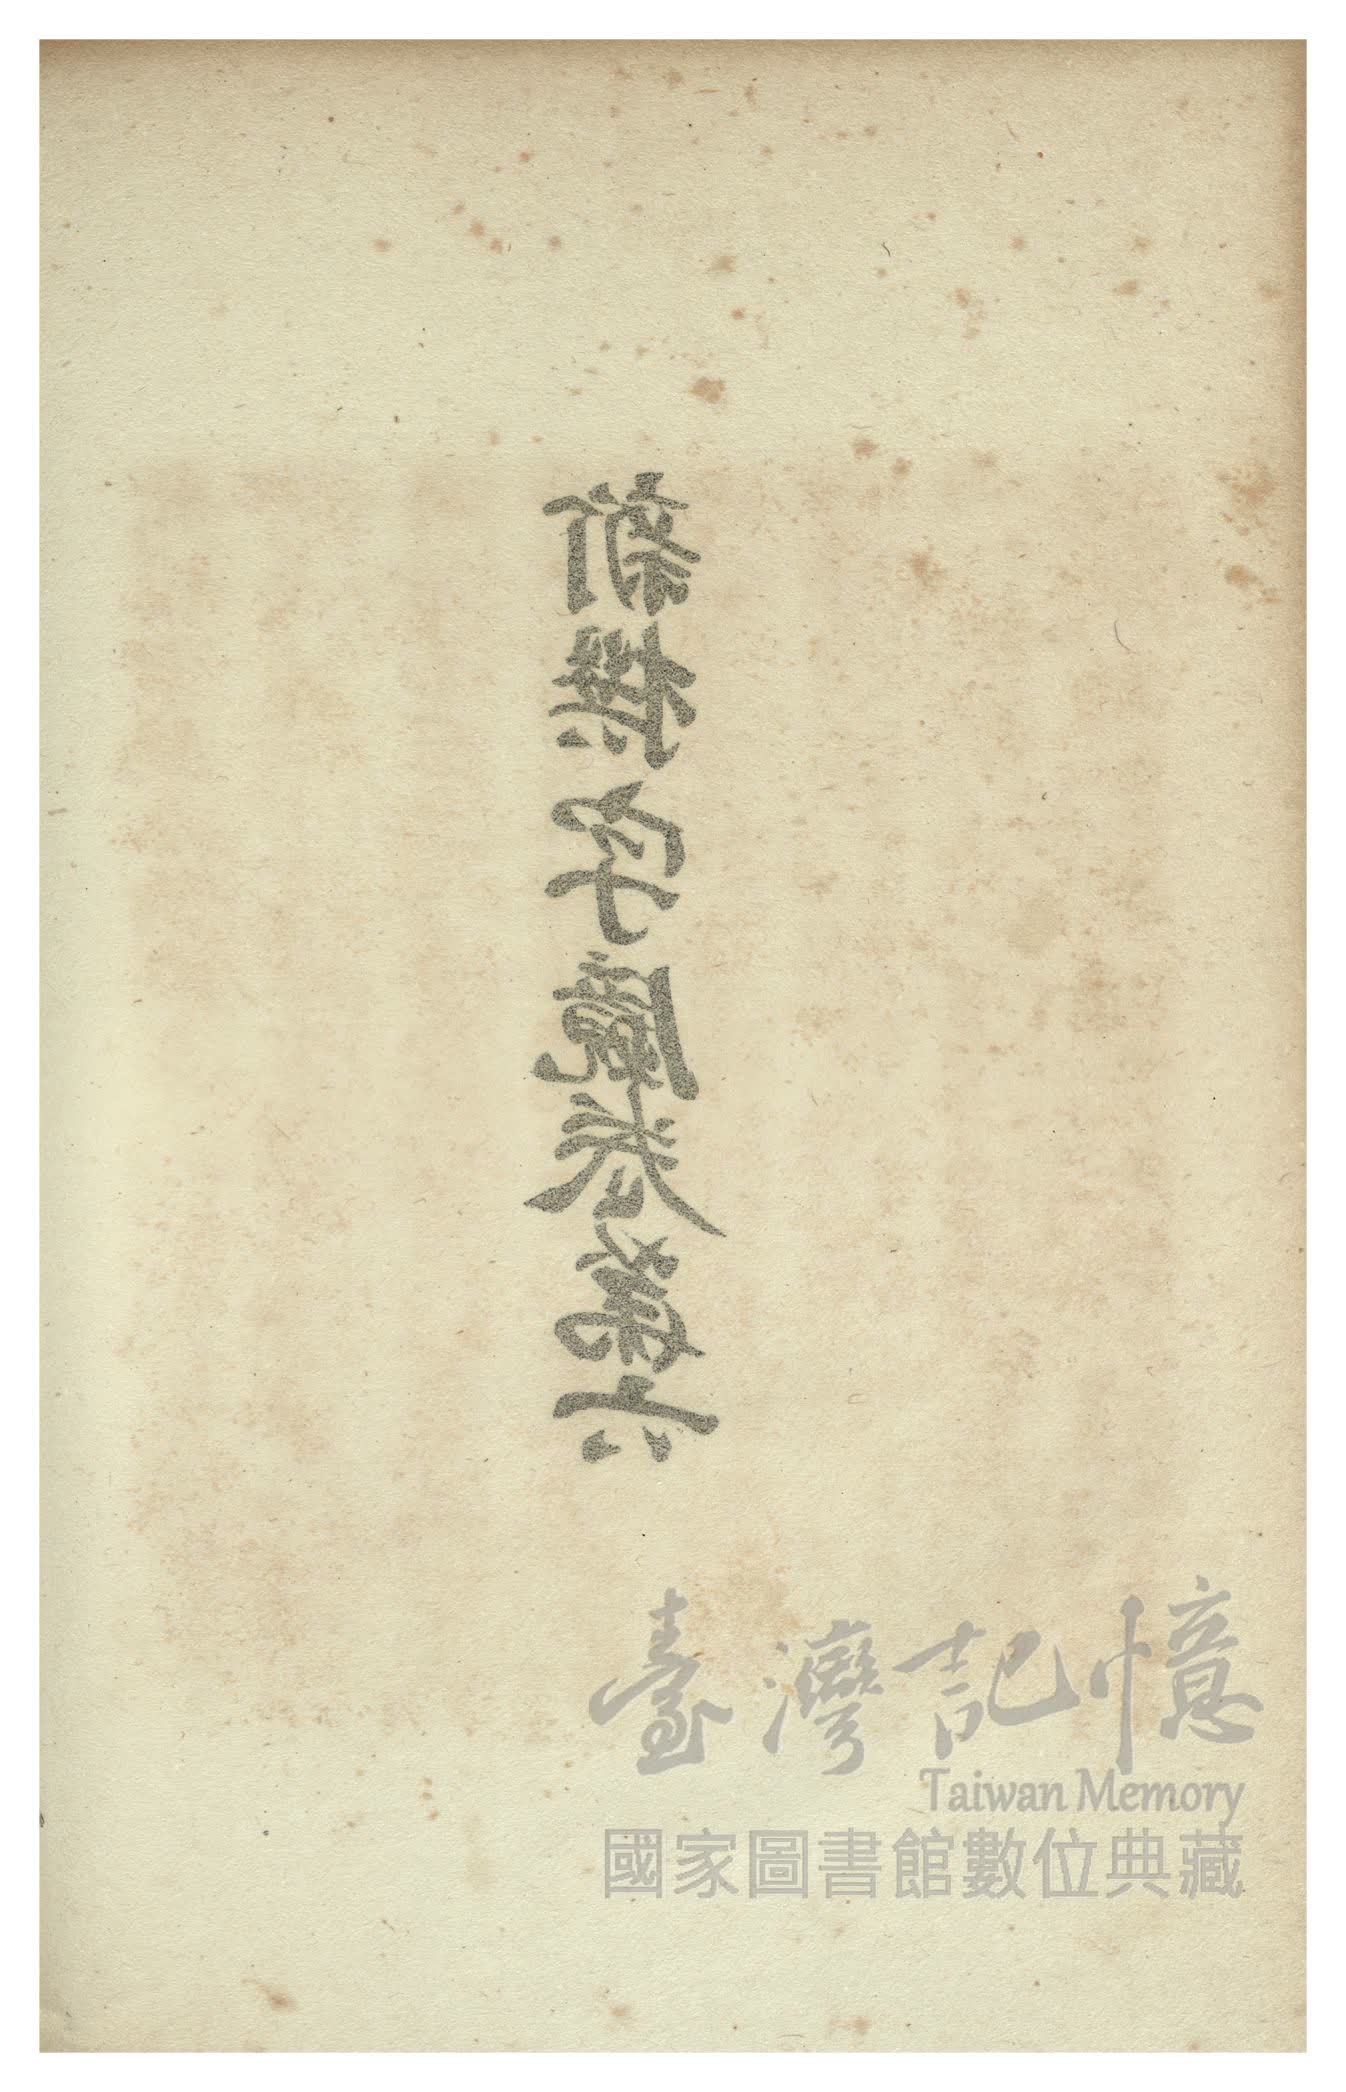 新撰字鏡卷第六
臺灣記憶
Taiwan Memory
國家圖書館數位典藏